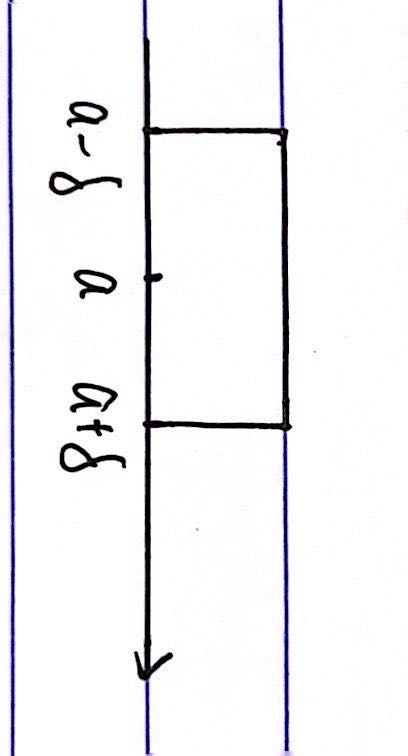 a-δ a a+δ